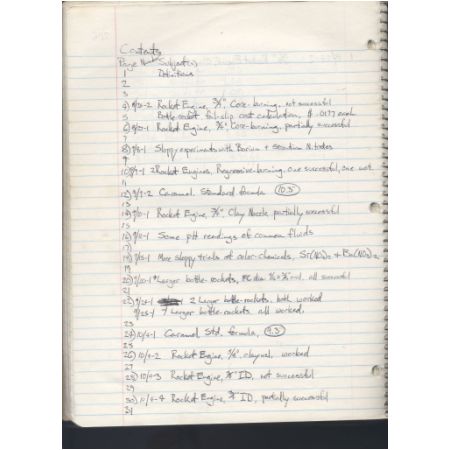 Contents
Page Num Subject(s)
1 Definitions
2
3
4) 8/20-2 Rocket Engine, 3/4", Core-burning, not successful
5 Bottle rocket fail-slip cost calculation, $ .0177 each
6) 8/20-1 Rocket Engine, 3/4", Core-burning, partially successful
7
8) 9/3-1 Sloppy experiments with Barium + Strontium Nitrates
9
10) 9/9-1 2 Rocket Engines, Regressive-burning, one successful, one not
11
12) 9/9-2 Caramel. Standard formula 10.5
13
14) 9/10-1 Rocket Engine, 3/4", Clay Nozzle, partially successful
15
16) 9/11-1 Some pH readings of common fluids
17
18) 9/15-1 More sloppy trials at color-chemicals, Sr(NO3)2 + Ba(NO3)2
19
20) 9/20-1 Larger bottle-rockets, all successful
21
22) 9/24-1 2 Larger bottle-rockets, both worked
9/25-1 7 Larger bottle-rockets, all worked.
23
24) 10/4-1 Caramel Std. formula, 9.3
25
26) 10/4-2 Rocket Engine, clay noz. worked
27
28) 10/4-3 Rocket Engine, 3/4" ID, not successful
29
30) 10/4-4 Rocket Engine, 3/4" ID, partially successful
31